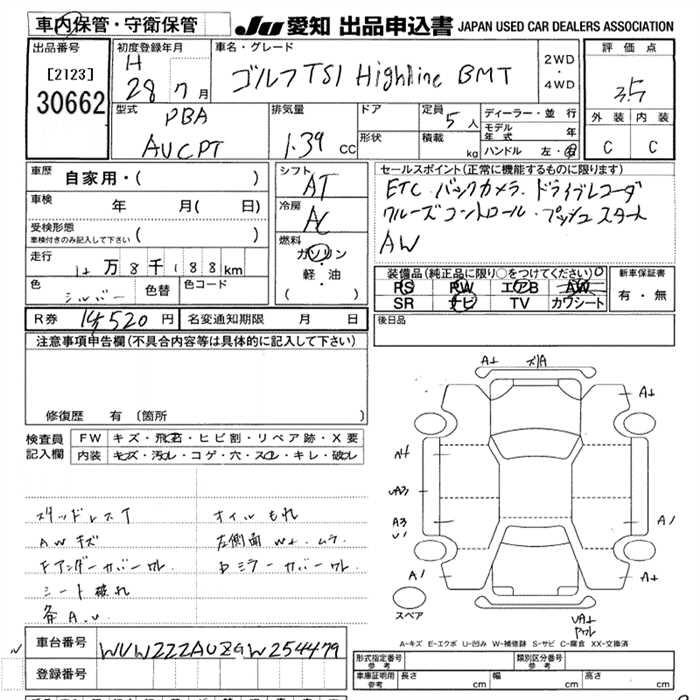 車内保管・守衛保管
JU 愛知 出品申込書 JAPAN USED CAR DEALERS ASSOCIATION
出品番号
[2123]
30662
初度登録年月
H
28 7月
車名・グレード
ゴルフ TSI Highline BMT
2WD
・
4WD
評価点
3.5
外装 内装
C C
型式
PBA
AUCPT
排気量
1.39 CC
ドア
形状
定員 5 人
積載 kg
ディーラー・並行
モデル年式 年
ハンドル 左・右
車歴 自家用・( )
車検 年 月( 日)
受検形態 ( )
車検付きのみ記入して下さい
走行 万 8 千 188 km
色 シルバー 色替 色コード
シフト
AT
冷房
AC
燃料
ガソリン
・
軽・油
( )
セールスポイント(正常に機能するものに限ります)
ETC バックカメラ ドライブレコーダ
クルーズコントロール プッシュスタート
AW
装備品(純正品に限り○をつけてください)
PS PW エアB AW
SR ナビ TV カワシート
新車保証書
有・無
後日品
R券 14,520 円
名変通知期限 月 日
注意事項申告欄(不具合内容等は具体的に記入して下さい)
修復歴 有 (箇所
検査員記入欄
FW キズ・飛石・ヒビ割・リペア跡・X要
内装 キズ・汚れ・コゲ・穴・スレ・キレ・破れ
スタッドレスT
AWキズ
Fアンダーカバーワレ
シート破れ
各A.U
オイルもれ
左側面 W+.ムラ
Dミラーカバーワレ
A+ ズリA
A+
A3
U1
A1
A1
A+
UA+
ワレ
スペア
A-キズ E-エクボ U-凹み W-補修跡 S-サビ C-腐食 XX-交換済
車台番号 WVWZZZAUZGW254479
登録番号
形式指定番号
参考
類別区分番号
参考
車庫証明用
参考
長さ cm
幅 cm
高さ cm